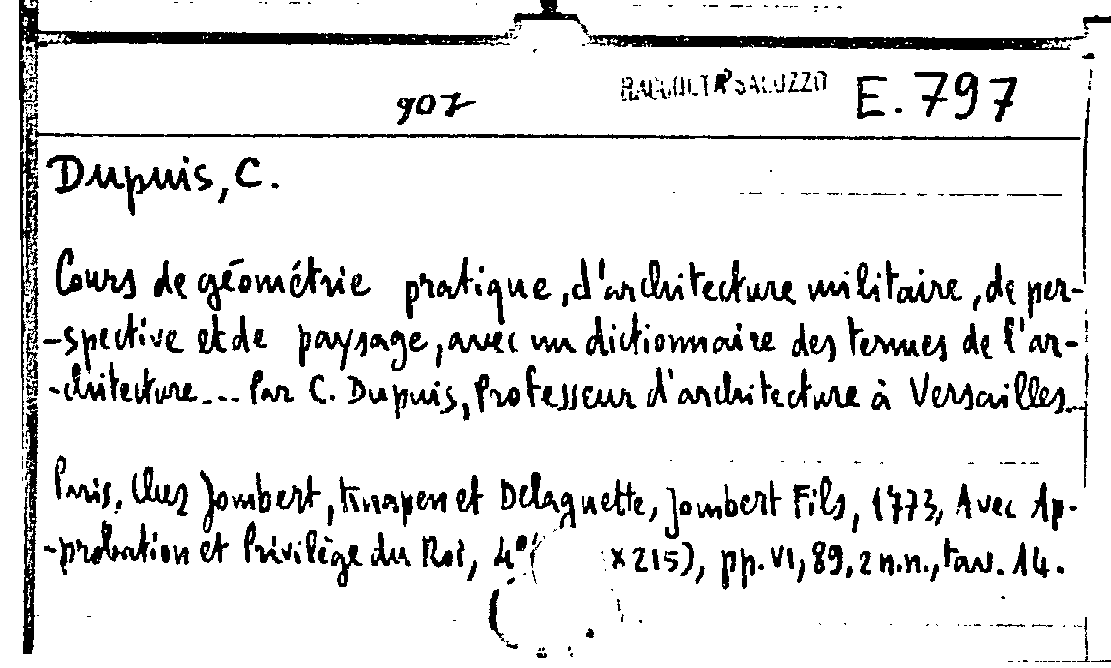 907 RACCOLTA SALUZZO E.797
Dupuis, C.
Cours de géométrie pratique, d'architecture militaire, de per-
-spective et de paysage, avec un dictionnaire des termes de l'ar-
-chitecture... Par C. Dupuis, Professeur d'architecture à Versailles..
Paris, Chez Jombert, Knapen et Delaguette, Jombert Fils, 1773, Avec Ap-
-probation et Privilège du Roi, 4°( x215), pp. VI, 89, 2 n.n., tav. 14.